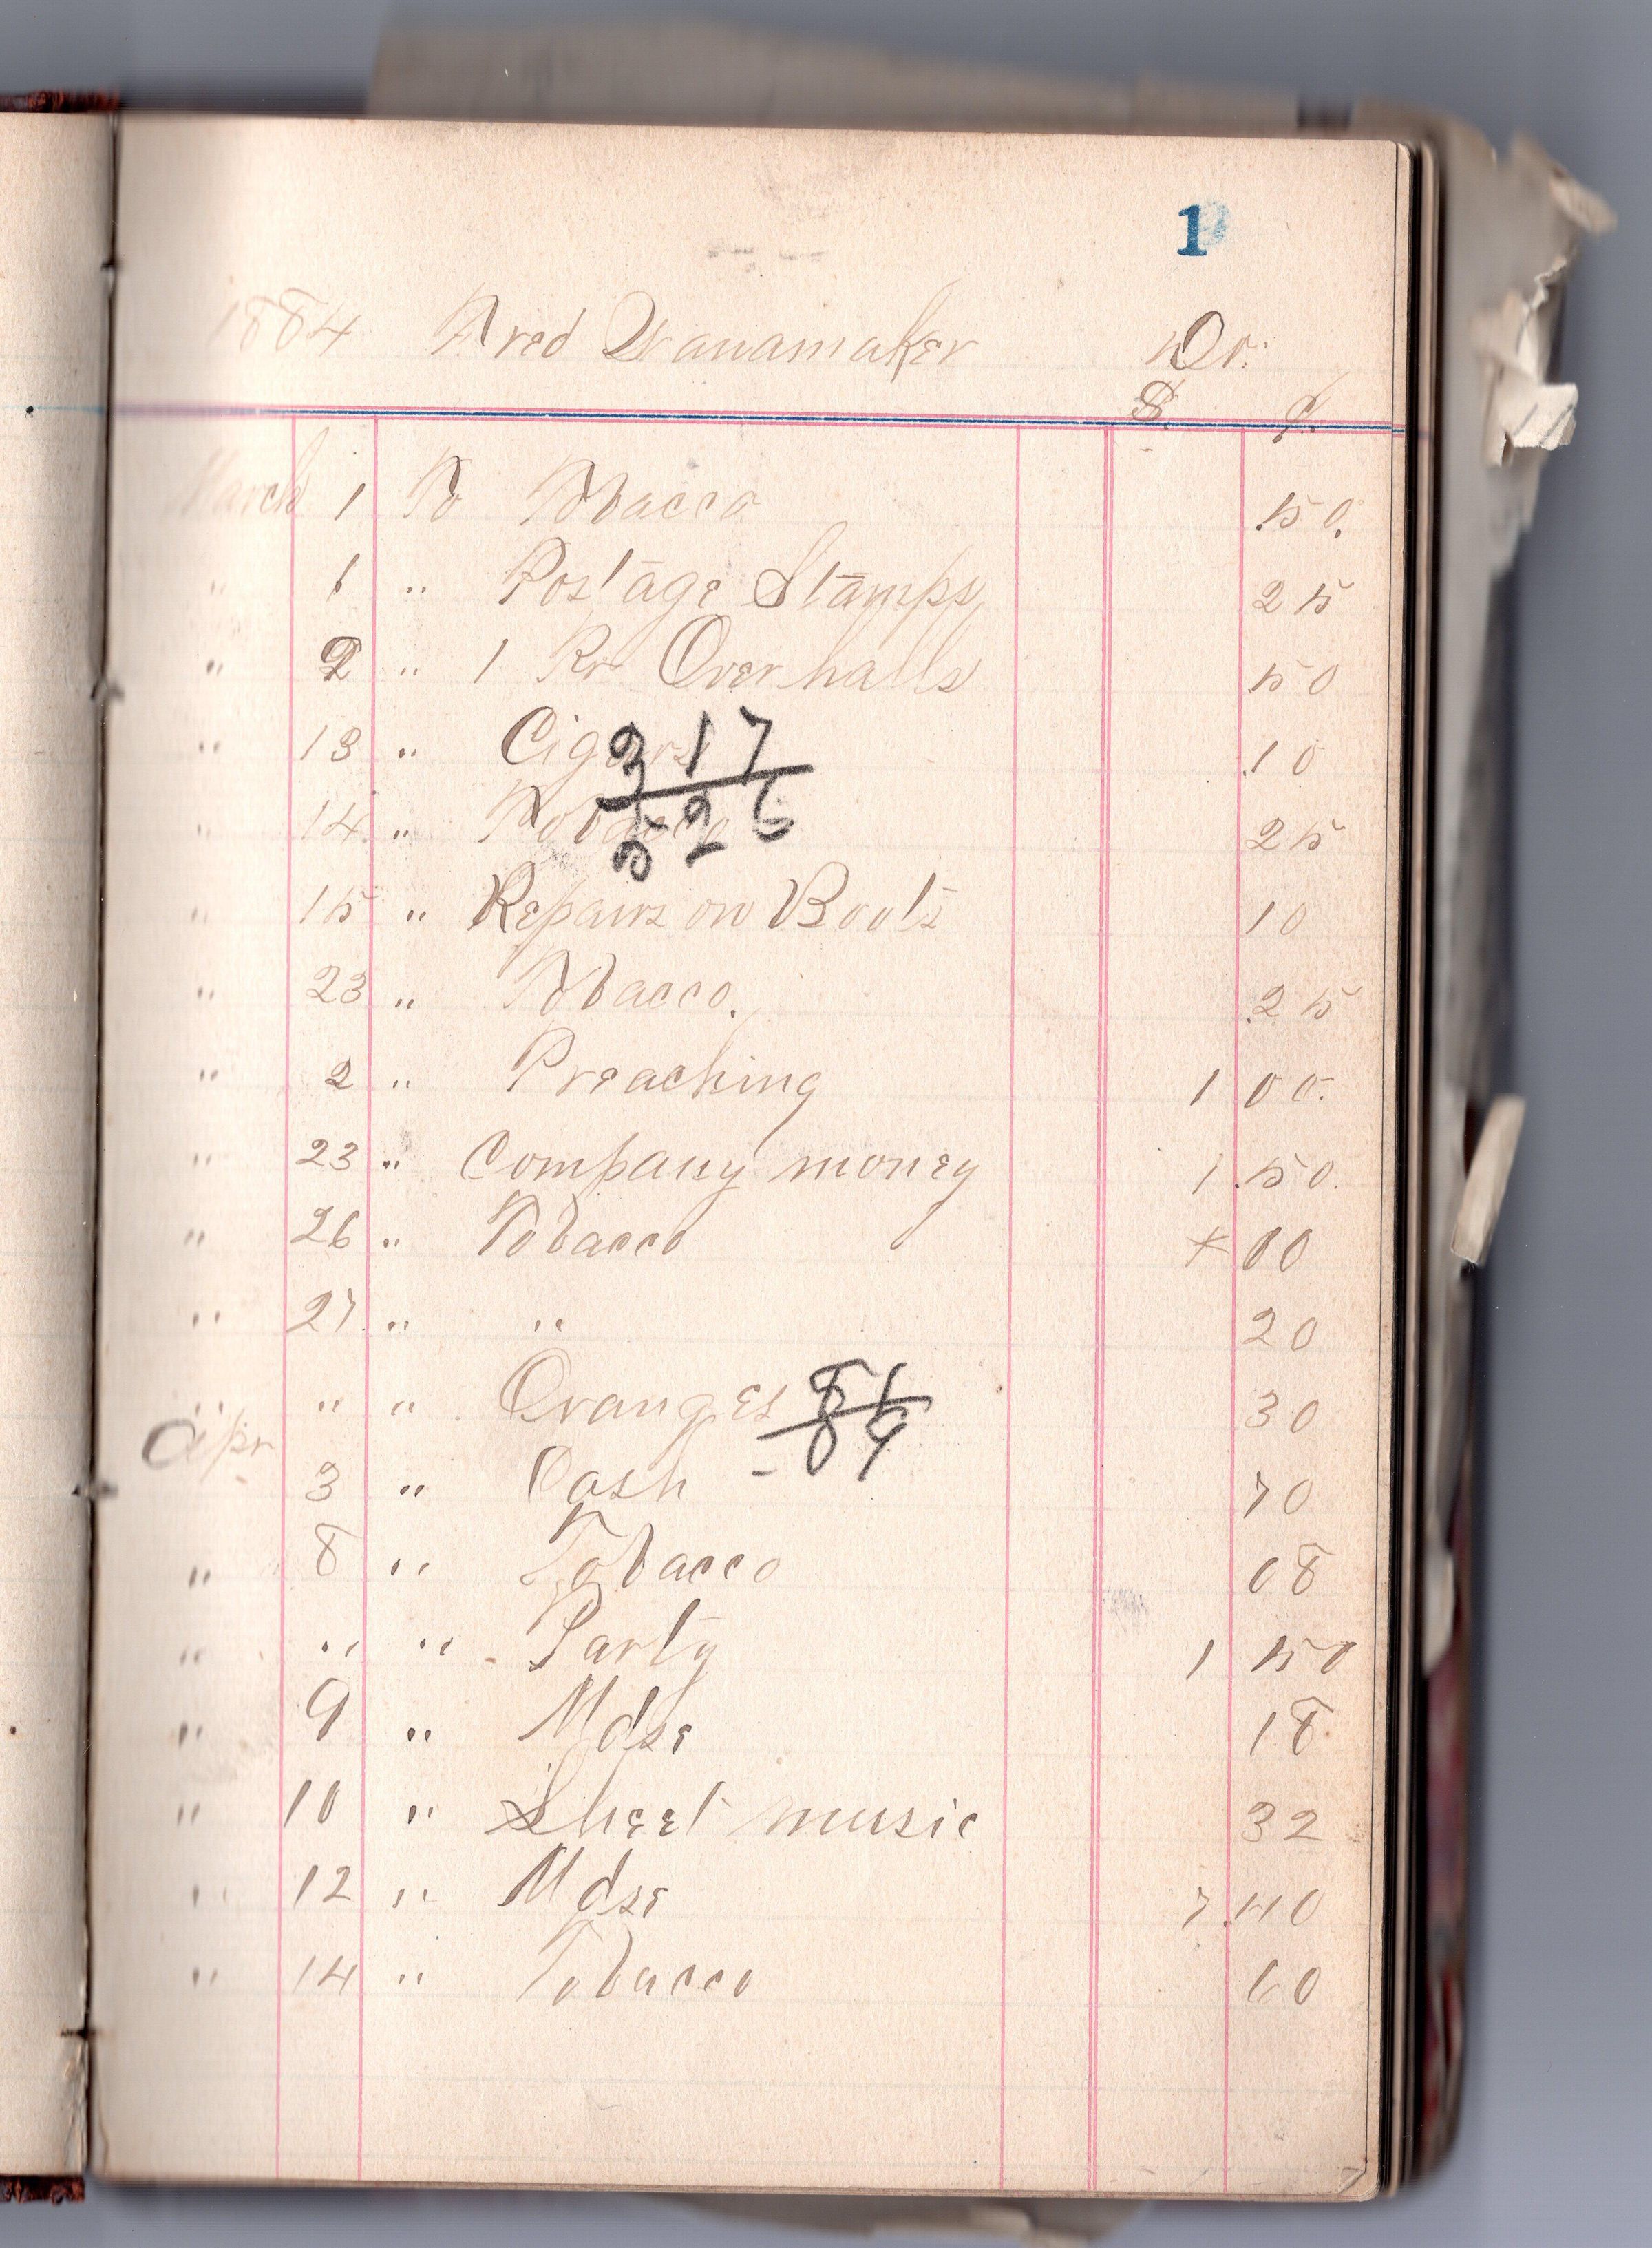 1
1884 Fred Wanamaker Dr.
$. ¢.
March 1 To Tobacco .50.
" 1 " Postage Stamps 25
" 2 " 1 Pr Overhalls .50
" 13 " Cigars .10
317
" 14 " Tobacco 25
326
" 15 " Repairs on Boots 10
" 23 " Tobacco. .25
" 2 " Preaching 1 00.
" 23 " Company money 1 .50.
" 26 " Tobacco + 00
" 27 " " 20
" " " Oranges 30
81
89
Apr 3 " Cash 70
" 8 " Tobacco 08
" " " Party 1 50
" 9 " Mdse 18
" 10 " Sheet music 32
" 12 " Mdse 7.40
" 14 " Tobacco 60